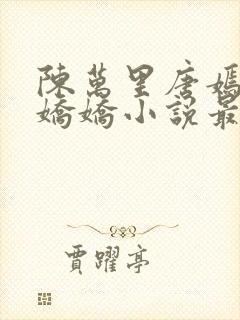 陳萬里唐嫣
嬌嬌小說最
賈躍亭